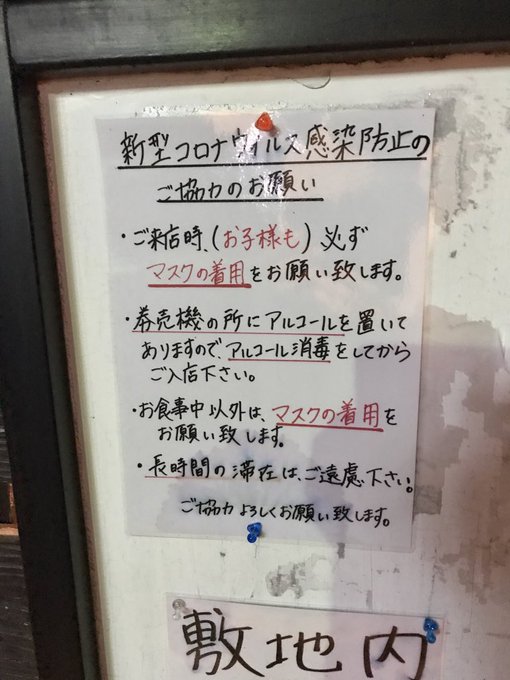 新型コロナウィルス感染防止の
ご協力のお願い
・ご来店時、(お子様も)必ず
マスクの着用をお願い致します。
・券売機の所にアルコールを置いて
ありますので、アルコール消毒をしてから
ご入店下さい。
・お食事中以外は、マスクの着用を
お願い致します。
・長時間の滞在は、ご遠慮下さい。
ご協力よろしくお願い致します。
敷地内